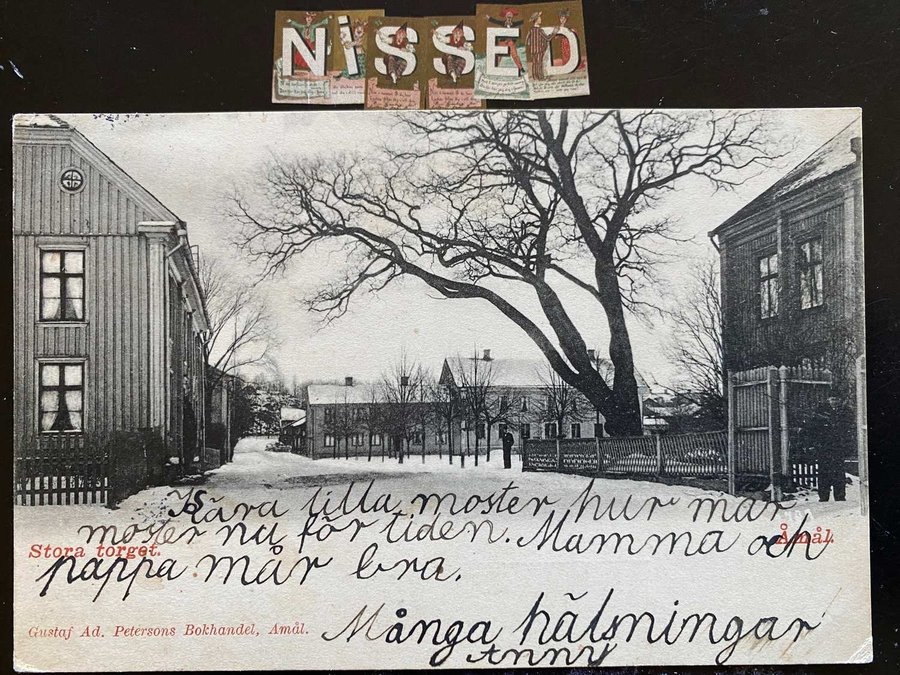 NiSSED
Kära lilla moster hur mår
moster nu för tiden. Mamma och
Stora torget. Åmål.
pappa mår bra.
Gustaf Ad. Petersons Bokhandel, Åmål.
Många hälsningar
Anny